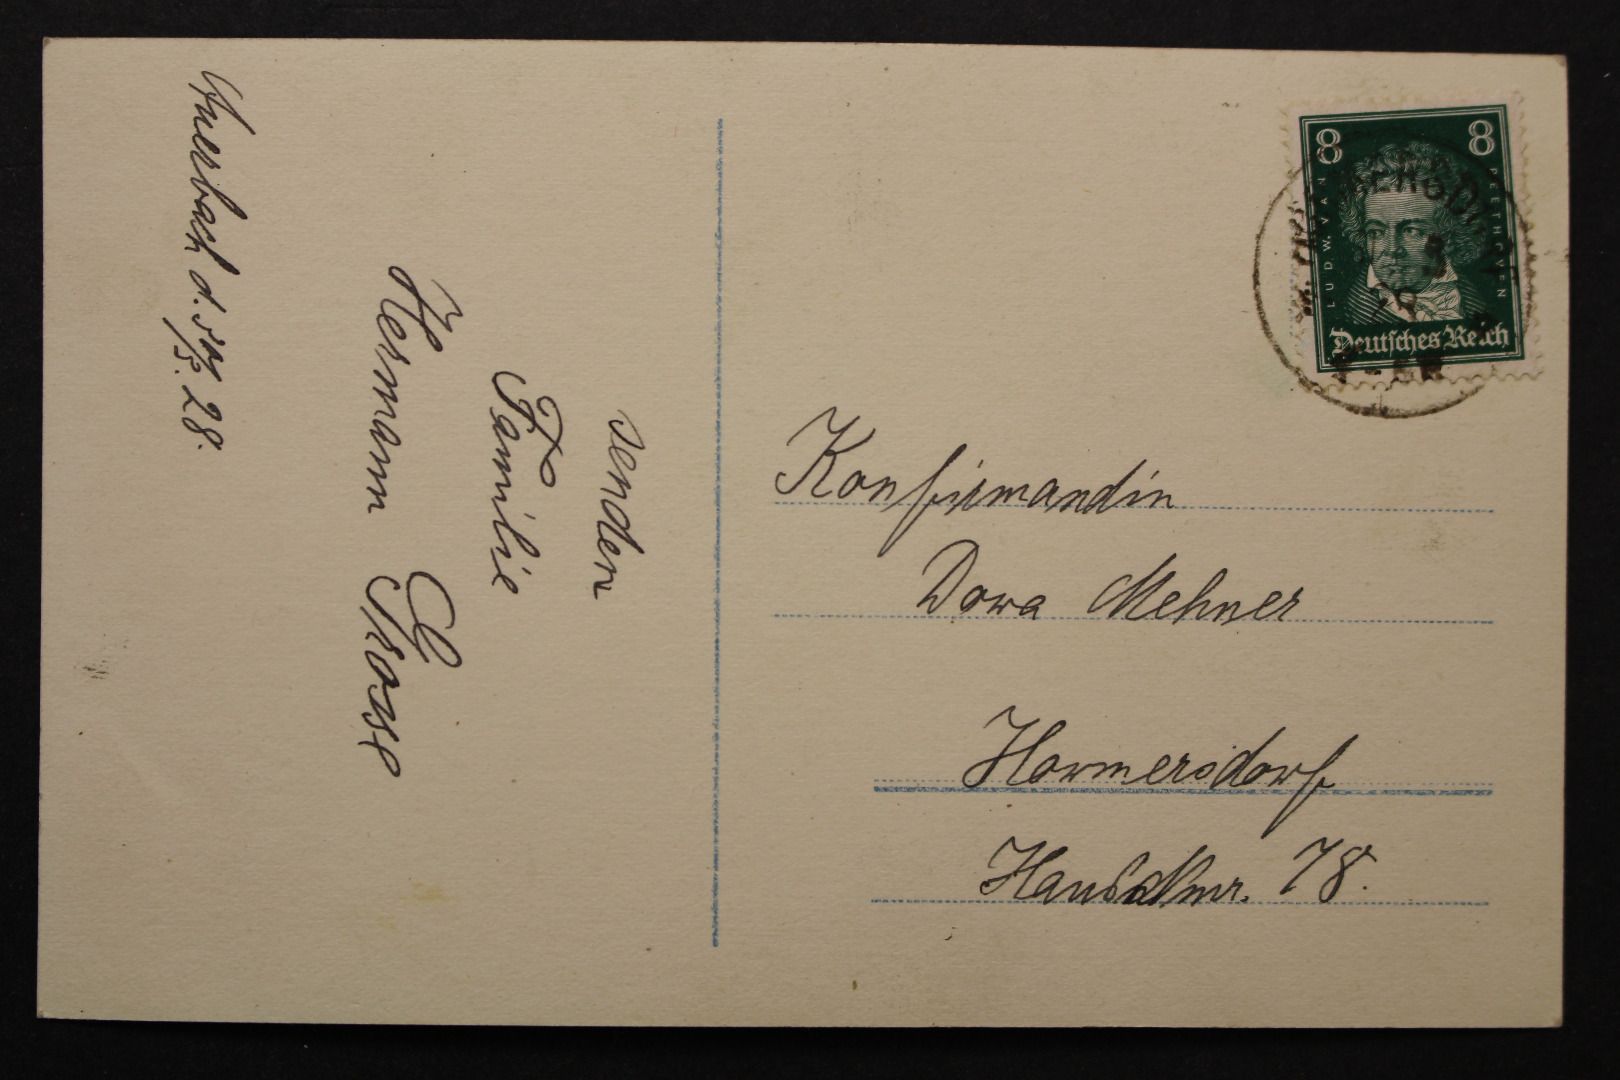 Auerbach d. 28.
senden
Familie
Hermann Grosse
8 8
LUDW. VAN BEETHOVEN
Deutsches Reich
Konfirmandin
Dora Mehner
Hormersdorf
78.